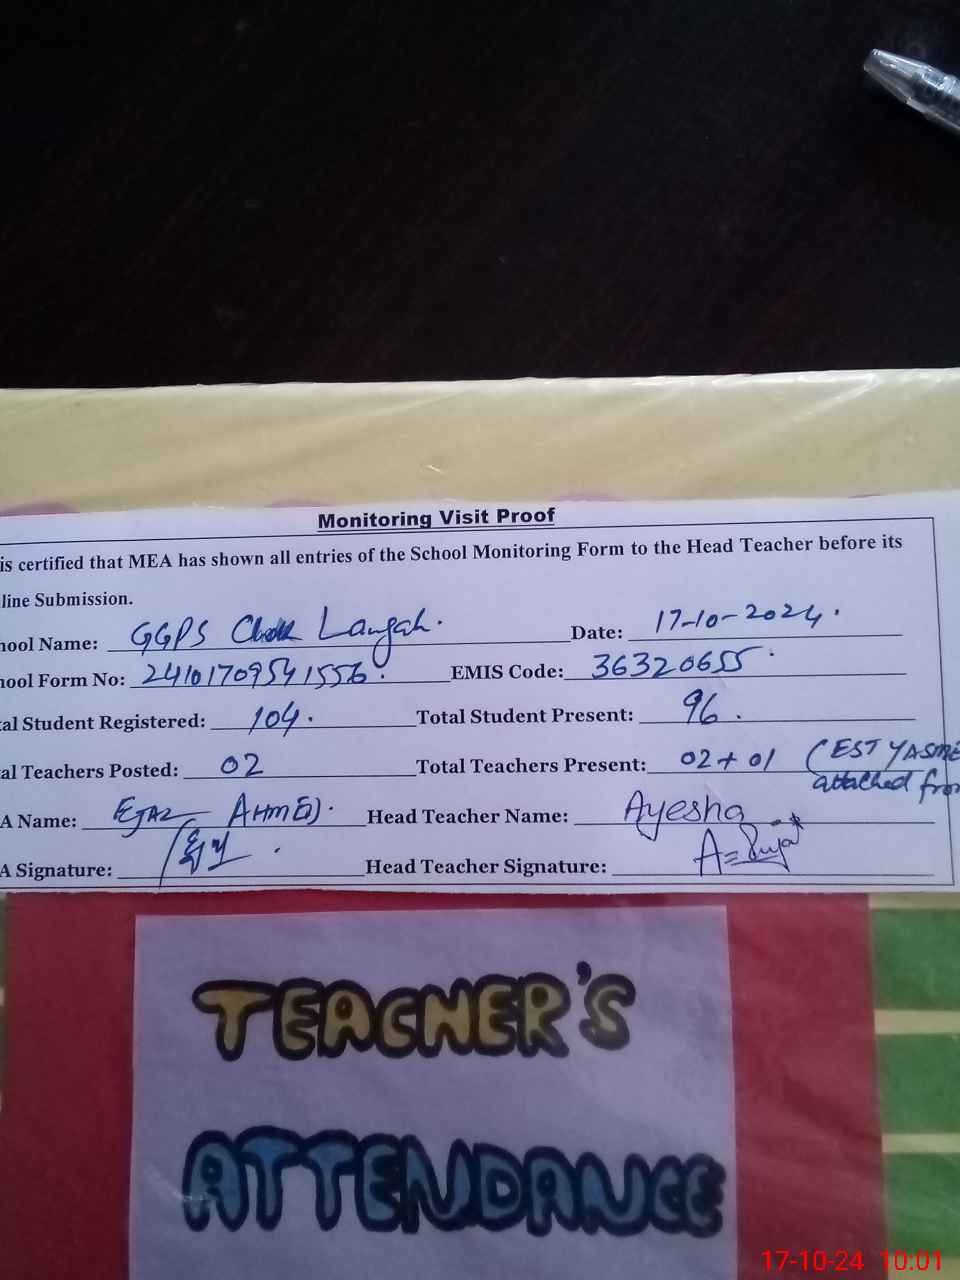 Monitoring Visit Proof
is certified that MEA has shown all entries of the School Monitoring Form to the Head Teacher before its
line Submission.
hool Name: GGPS Chak Langah. Date: 17-10-2024.
hool Form No: 24101709541556. EMIS Code: 36320655
tal Student Registered: 104. Total Student Present: 96.
al Teachers Posted: 02 Total Teachers Present: 02+01 (EST YASME
attached from
A Name: EJAZ AHMED. Head Teacher Name: Ayesha
A Signature: Head Teacher Signature:
TEACHER'S
ATTENDANCE
17-10-24 10:01